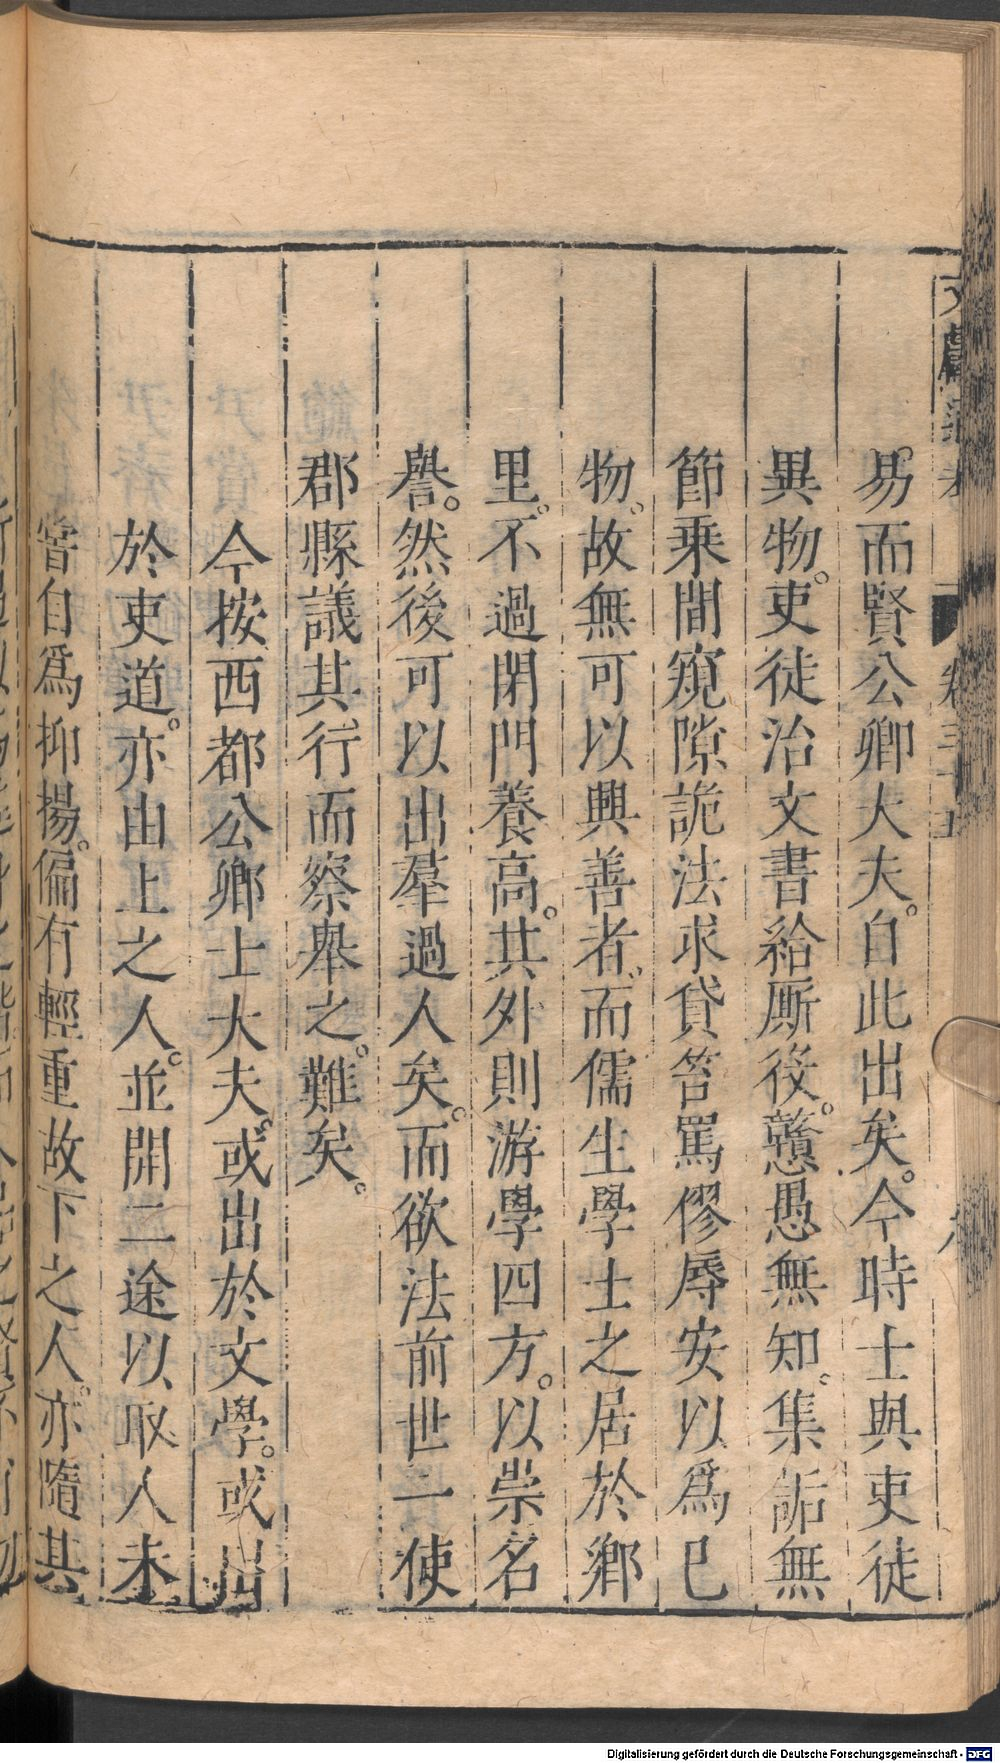 易而賢公卿大夫。自此出矣。今時士與吏徒
異物。吏徒治文書給厮役。戇愚無知。集詬無
節乗間窺隙詭法求貸笞罵僇辱安以爲已
物。故無可以興善者。而儒生學士之居於鄉
里。不過閉門養高。其外則游學四方。以崇名
譽。然後可以出羣過人矣。而欲法前世一使
郡縣議其行而察舉之。難矣。
今按西都公卿士大夫。或出於文學。或出
於吏道。亦由上之人。並開二途以取人未
嘗自爲抑揚。偏有輕重故下之人。亦隨其
Digitalisierung gefördert durch die Deutsche Forschungsgemeinschaft - DFG